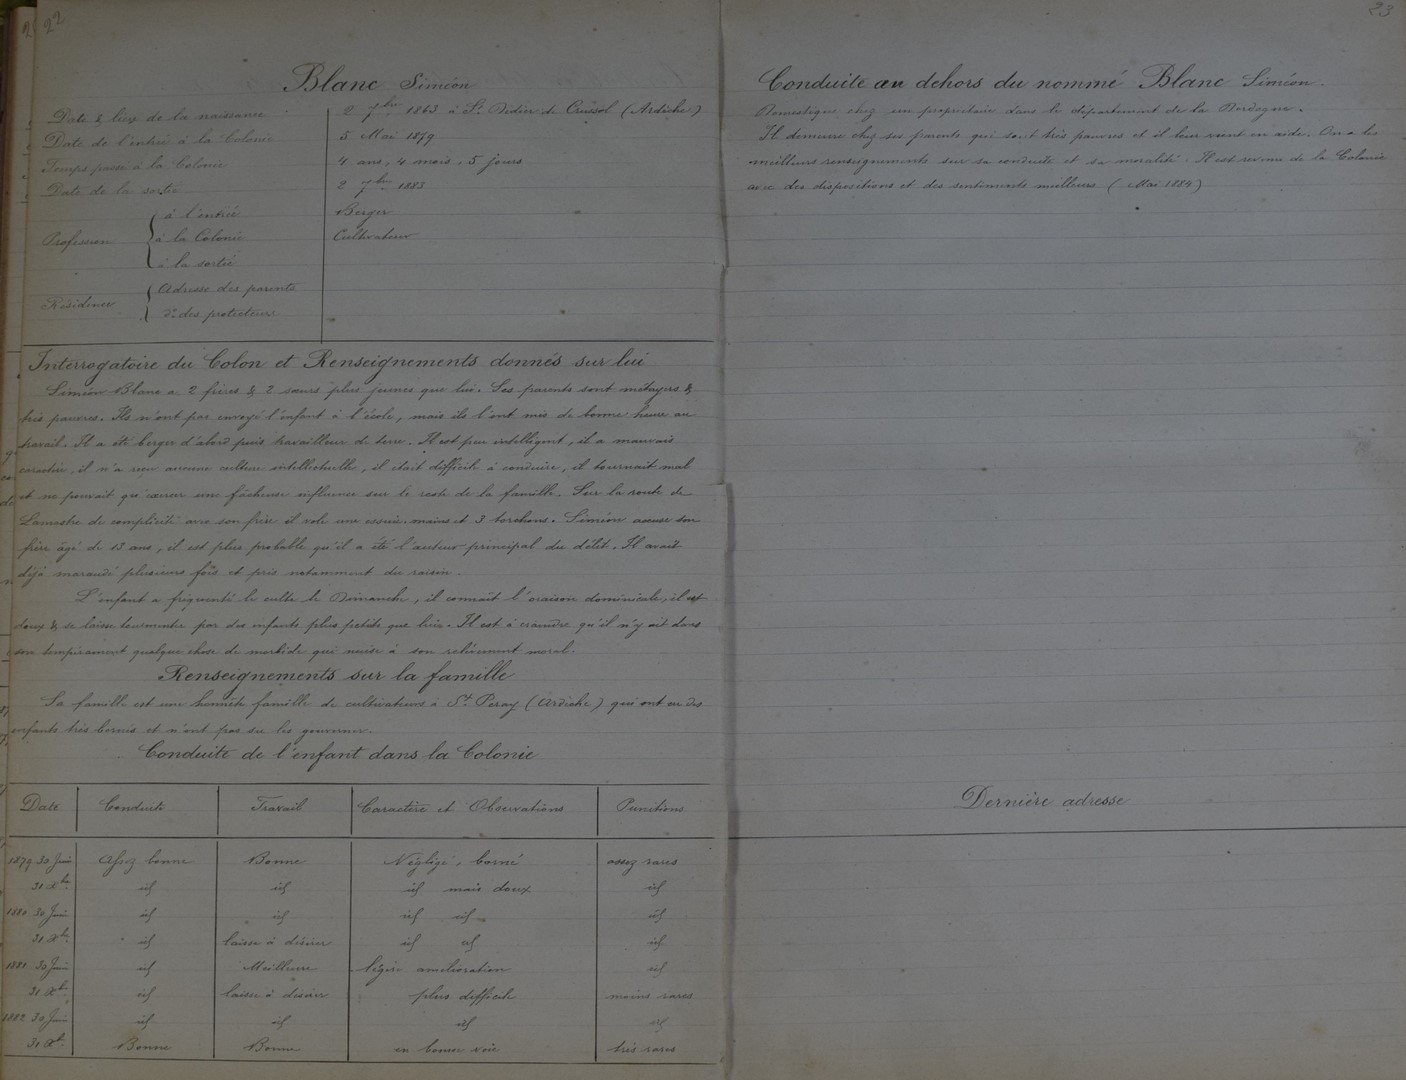 22
Blanc Siméon
Date & lieu de la naissance 2 7bre 1863 à St. Didier de Crussol (Ardèche)
Date de l'entrée à la Colonie 5 Mai 1879
Temps passé à la Colonie 4 ans, 4 mois, 5 jours
Date de la sortie 2 7bre 1883
Profession
à l'entrée Berger
à la Colonie Cultivateur
à la sortie
Résidence
Adresse des parents
do des protecteurs
Interrogatoire du Colon et Renseignements donnés sur lui
Siméon Blanc a 2 frères & 2 sœurs plus jeunes que lui. Ses parents sont métayers &
très pauvres. Ils n'ont pas envoyé l'enfant à l'école, mais ils l'ont mis de bonne heure au
travail. Il a été berger d'abord puis travailleur de terre. Il est peu intelligent, il a mauvais
caractère, il n'a reçu aucune culture intellectuelle, il était difficile à conduire, il tournait mal
et ne pouvait qu'exercer une fâcheuse influence sur le reste de la famille. Sur la route de
Lamastre de complicité avec son frère il vole une essuie-mains et 3 torchons. Siméon accuse son
frère âgé de 13 ans, il est plus probable qu'il a été l'auteur principal du délit. Il avait
déjà maraudé plusieurs fois et pris notamment du raisin.
L'enfant a fréquenté le culte le Dimanche, il connaît l'oraison dominicale, il est
doux & se laisse tourmenter par des enfants plus petits que lui. Il est à craindre qu'il n'y ait dans
son tempérament quelque chose de morbide qui nuise à son relèvement moral.
Renseignements sur la famille
La famille est une honnête famille de cultivateurs à St. Peray (Ardèche) qui ont eu des
enfants très bornés et n'ont pas su les gouverner.
Conduite de l'enfant dans la Colonie
Date Conduite Travail Caractère et Observations Punitions
1879 30 Juin Assez bonne Bonne Négligé, borné assez rares
31 Xbre id id id mais doux id
1880 30 Juin id id id id id
31 Xbre id laisse à désirer id id id
1881 30 Juin id Meilleure légère amélioration id
31 Xbre id laisse à désirer plus difficile moins rares
1882 30 Juin id id id id
31 Xbre Bonne Bonne en bonne voie très rares
23
Conduite au dehors du nommé Blanc Siméon
Domestique chez un propriétaire dans le département de la Dordogne.
Il demeure chez ses parents qui sont très pauvres et il leur vient en aide. On a les
meilleurs renseignements sur sa conduite et sa moralité. Il est revenu de la Colonie
avec des dispositions et des sentiments meilleurs (Mai 1884)
Dernière adresse